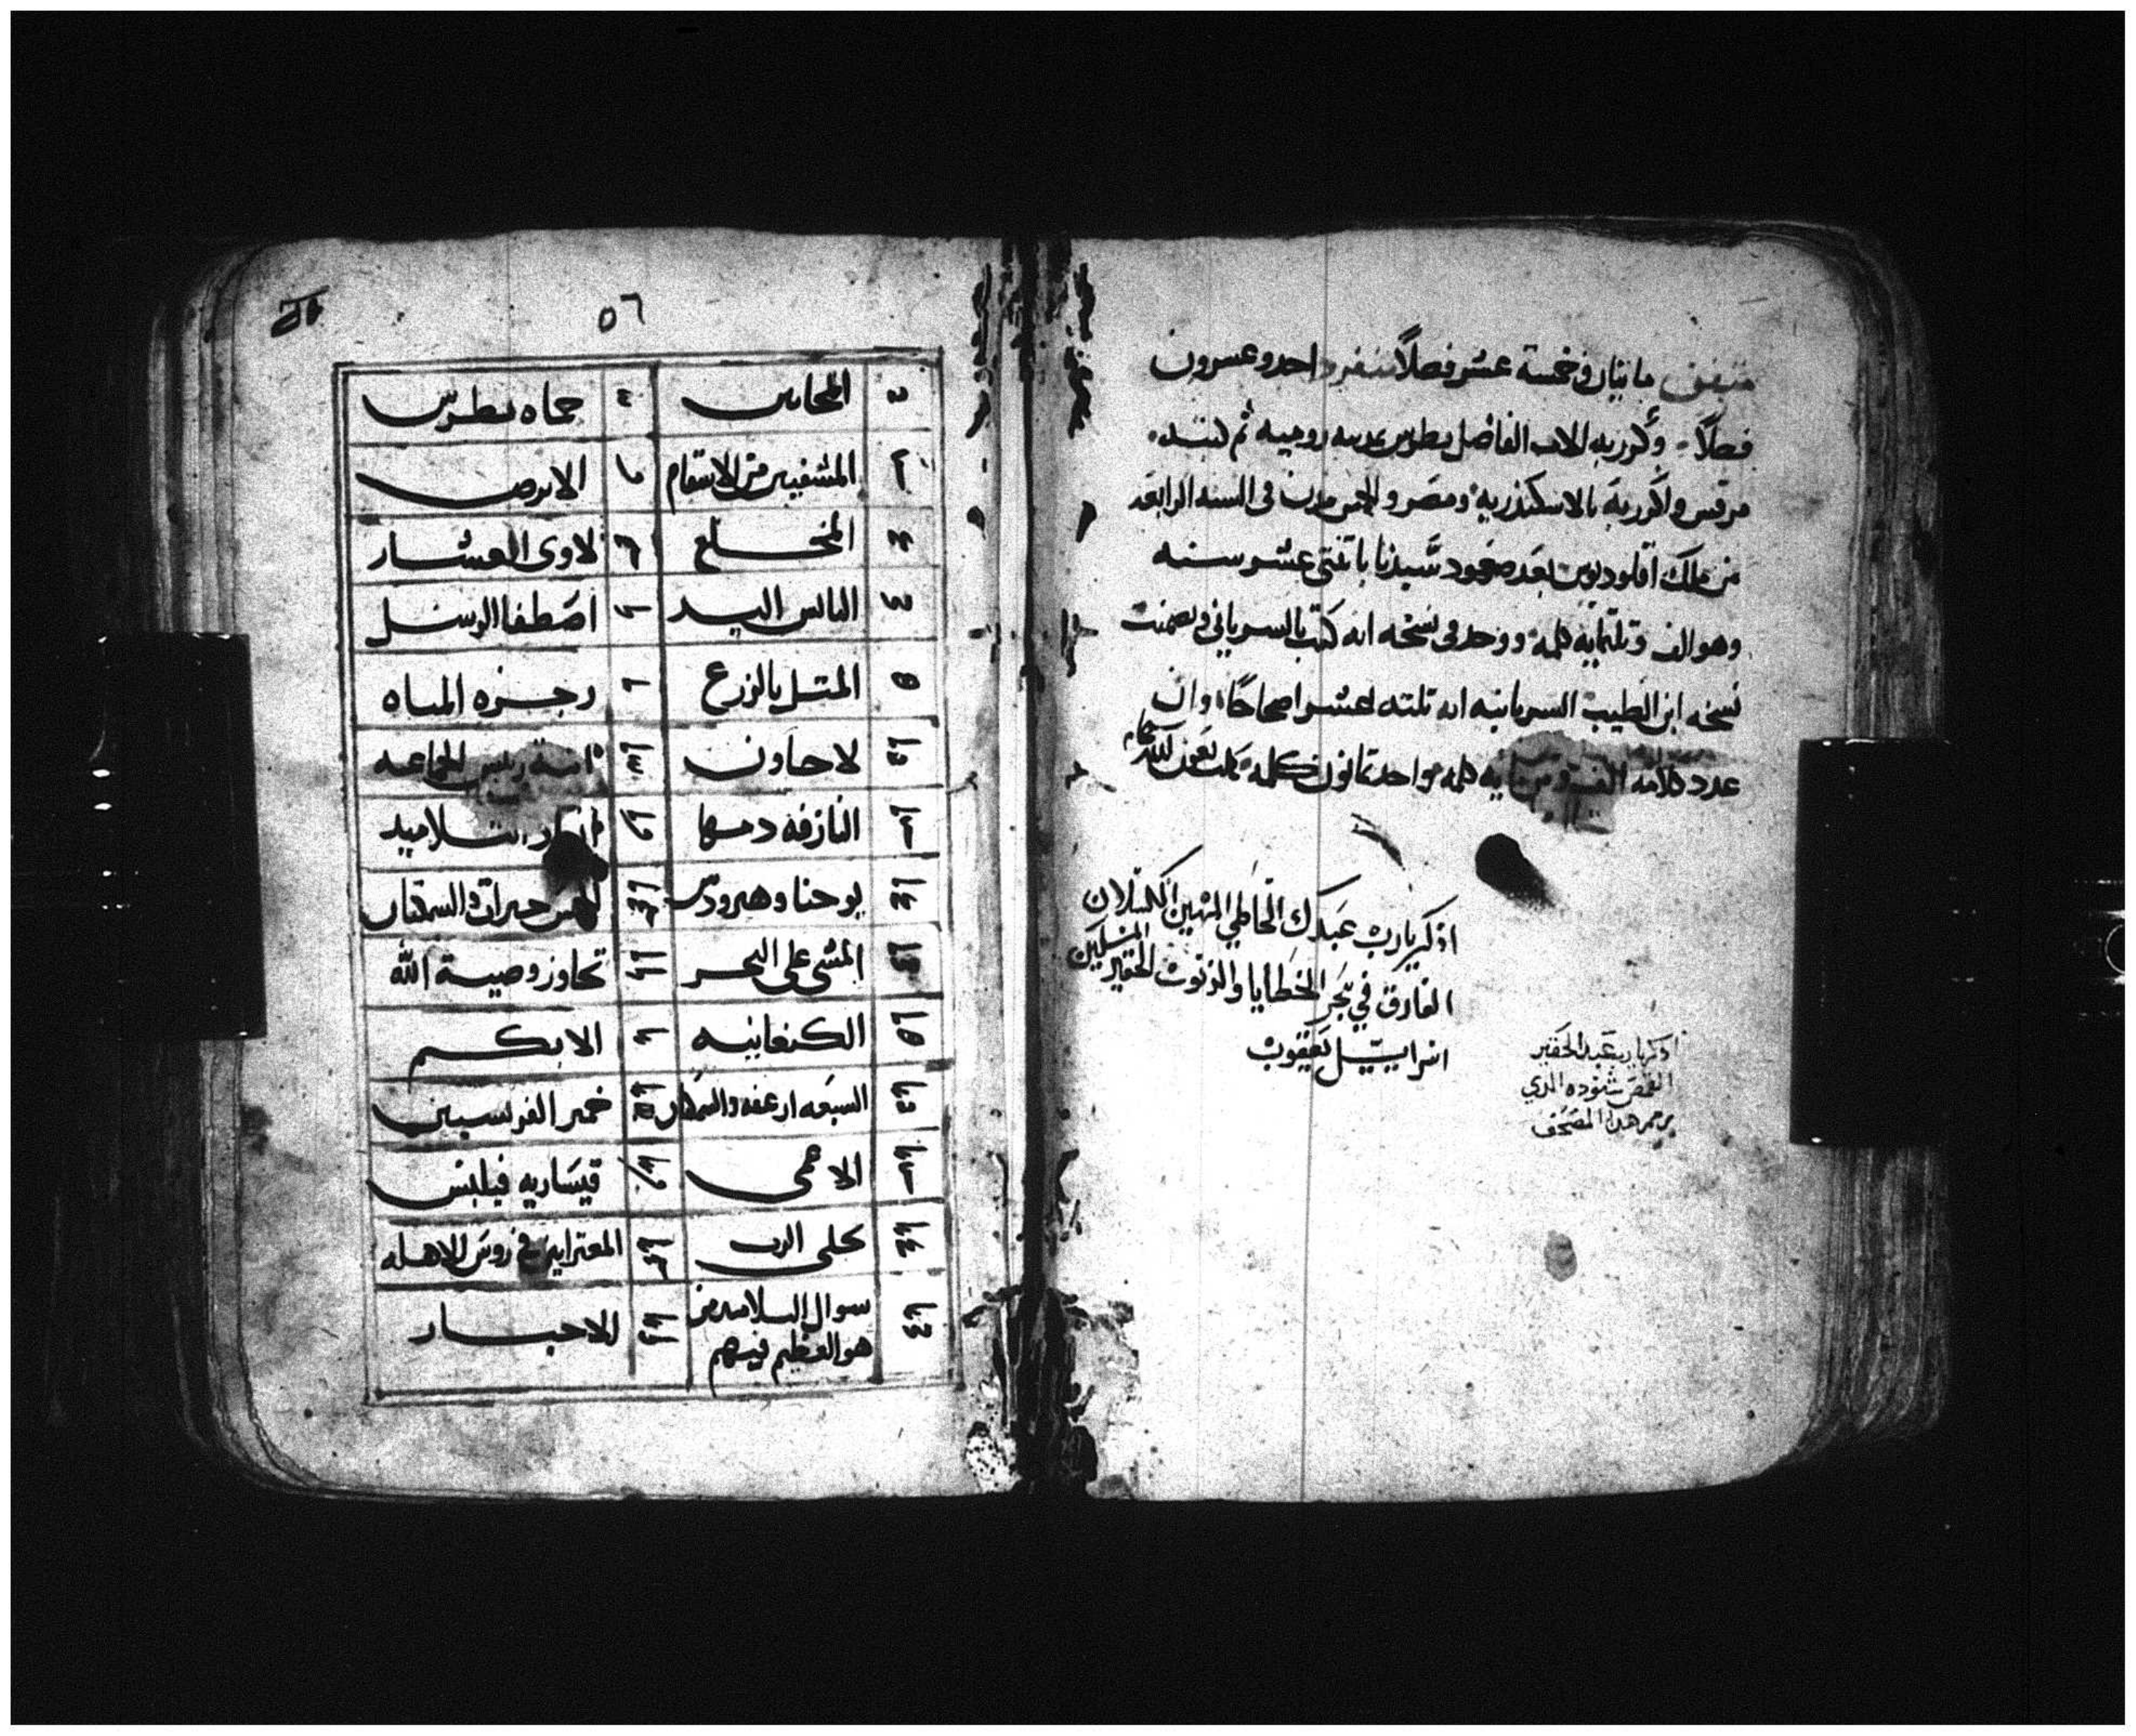 متفق مايتان وخمسة عشر فصلاً منفرد احد وعشرون
فصلاً وكرز به للاب الفاضل بطرس بمدينه روميه ثم كتبه
مرقس واكرز به بالاسكندريه ومصر والخمس مدن فى السنه الرابعه
من ملك اقلوديوس بعد صعود سيدنا باتنتى عشر سنه
وهو الف وتلتمايه كلمه ووجد فى نسخه انه كتب بالسرياني وتضمنت
نسخه ابن الطيب السريانيه انه تلته عشر اصحاحًا وان
عدد كلامه الف وستمايه كلمه واحد تمانون كلمه
اذكر يارب عبدك الخاطي المهين الكسلان
الغارق في بحر الخطايا والذنوب الحقير المسكين
اسراييل يعقوب
اذكر يارب عبدك الحقير
القمص شنوده الذي
يرمم هذا المصحف
٥٦
المجانين حماه بطرس
المشفيين من الاسقام الابرص
المخلع لاوى العشار
اليابس اليد اصطفا الرسل
المتل بالزرع زجره المياه
لاجاون ابنة رييس الجماعه
النازفه دمها التلاميد
يوحنا وهيرودس الخمس خبزات والسمكتان
المشى على البحر تجاوز وصية الله
الكنعانيه الابكم
السبعه ارغفه والسمك خمير الفريسيين
الاعمى قيساريه فيلبس
تجلى الرب المعترايين في روس الاهله
سوال التلاميد من
هو العظيم فيهم الاحبار